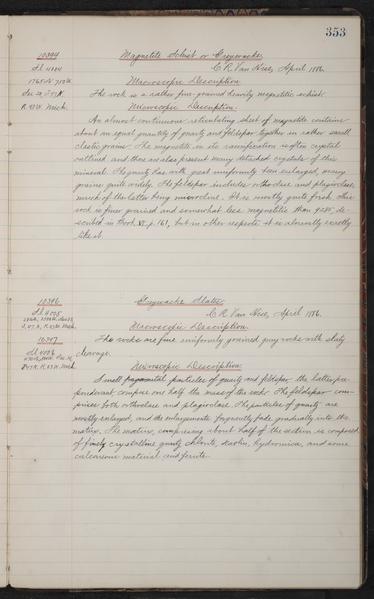 353
10394
Magnetite Schist or Greywacke.
Sl 4004
C. R. Van Hise, April 1886.
Macroscopic Description
The rock is a rather fine grained heavily magnetitic schist.
R. 43 W. Mich.
Microscopic Description.
An almost continuous reticulating sheet of magnetite contains
about an equal quantity of quartz and feldspar together in rather small
clastic grains. The magnetite in its ramification is often crystal
outlined and there are also present many detached crystals of this
mineral. The quartz has with great uniformity been enlarged, many
grains quite widely. The feldspar includes orthoclase and plagioclase,
much of the latter being microcline. It is mostly quite fresh. This
rock is finer grained and somewhat less magnetitic than 9285, de-
scribed in Book VI, p. 161, but in other respects it is almost exactly
like it.
10396
Greywacke Slates
Sl 4005
C. R. Van Hise, April 1886.
Macroscopic Description.
10397
The rocks are fine uniformly grained grey rocks with slaty
Sl 4006
cleavage.
Microscopic Description.
Small fragmental particles of quartz and feldspar the latter pre-
ponderant compose one half the mass of the rock. The feldspar com-
prises both orthoclase and plagioclase. The particles of quartz are
mostly enlarged, and the enlargements frequently fade gradually into the
matrix. The matrix, comprising about half of the section is composed
of finely crystalline quartz, chlorite, kaolin, hydromica, and some
calcareous material and ferrite.